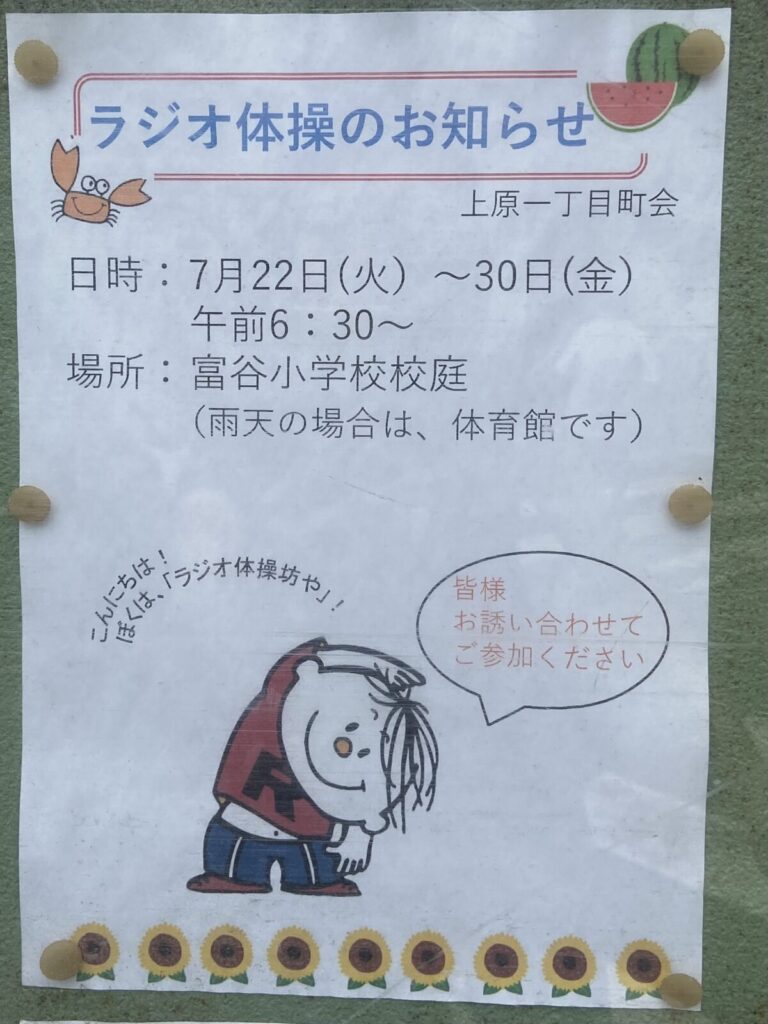 ラジオ体操のお知らせ
上原一丁目町会
日時：7月22日(火）～30日(金）
午前6：30～
場所：富谷小学校校庭
（雨天の場合は、体育館です）
こんにちは！
ぼくは、「ラジオ体操坊や」！
皆様
お誘い合わせて
ご参加ください